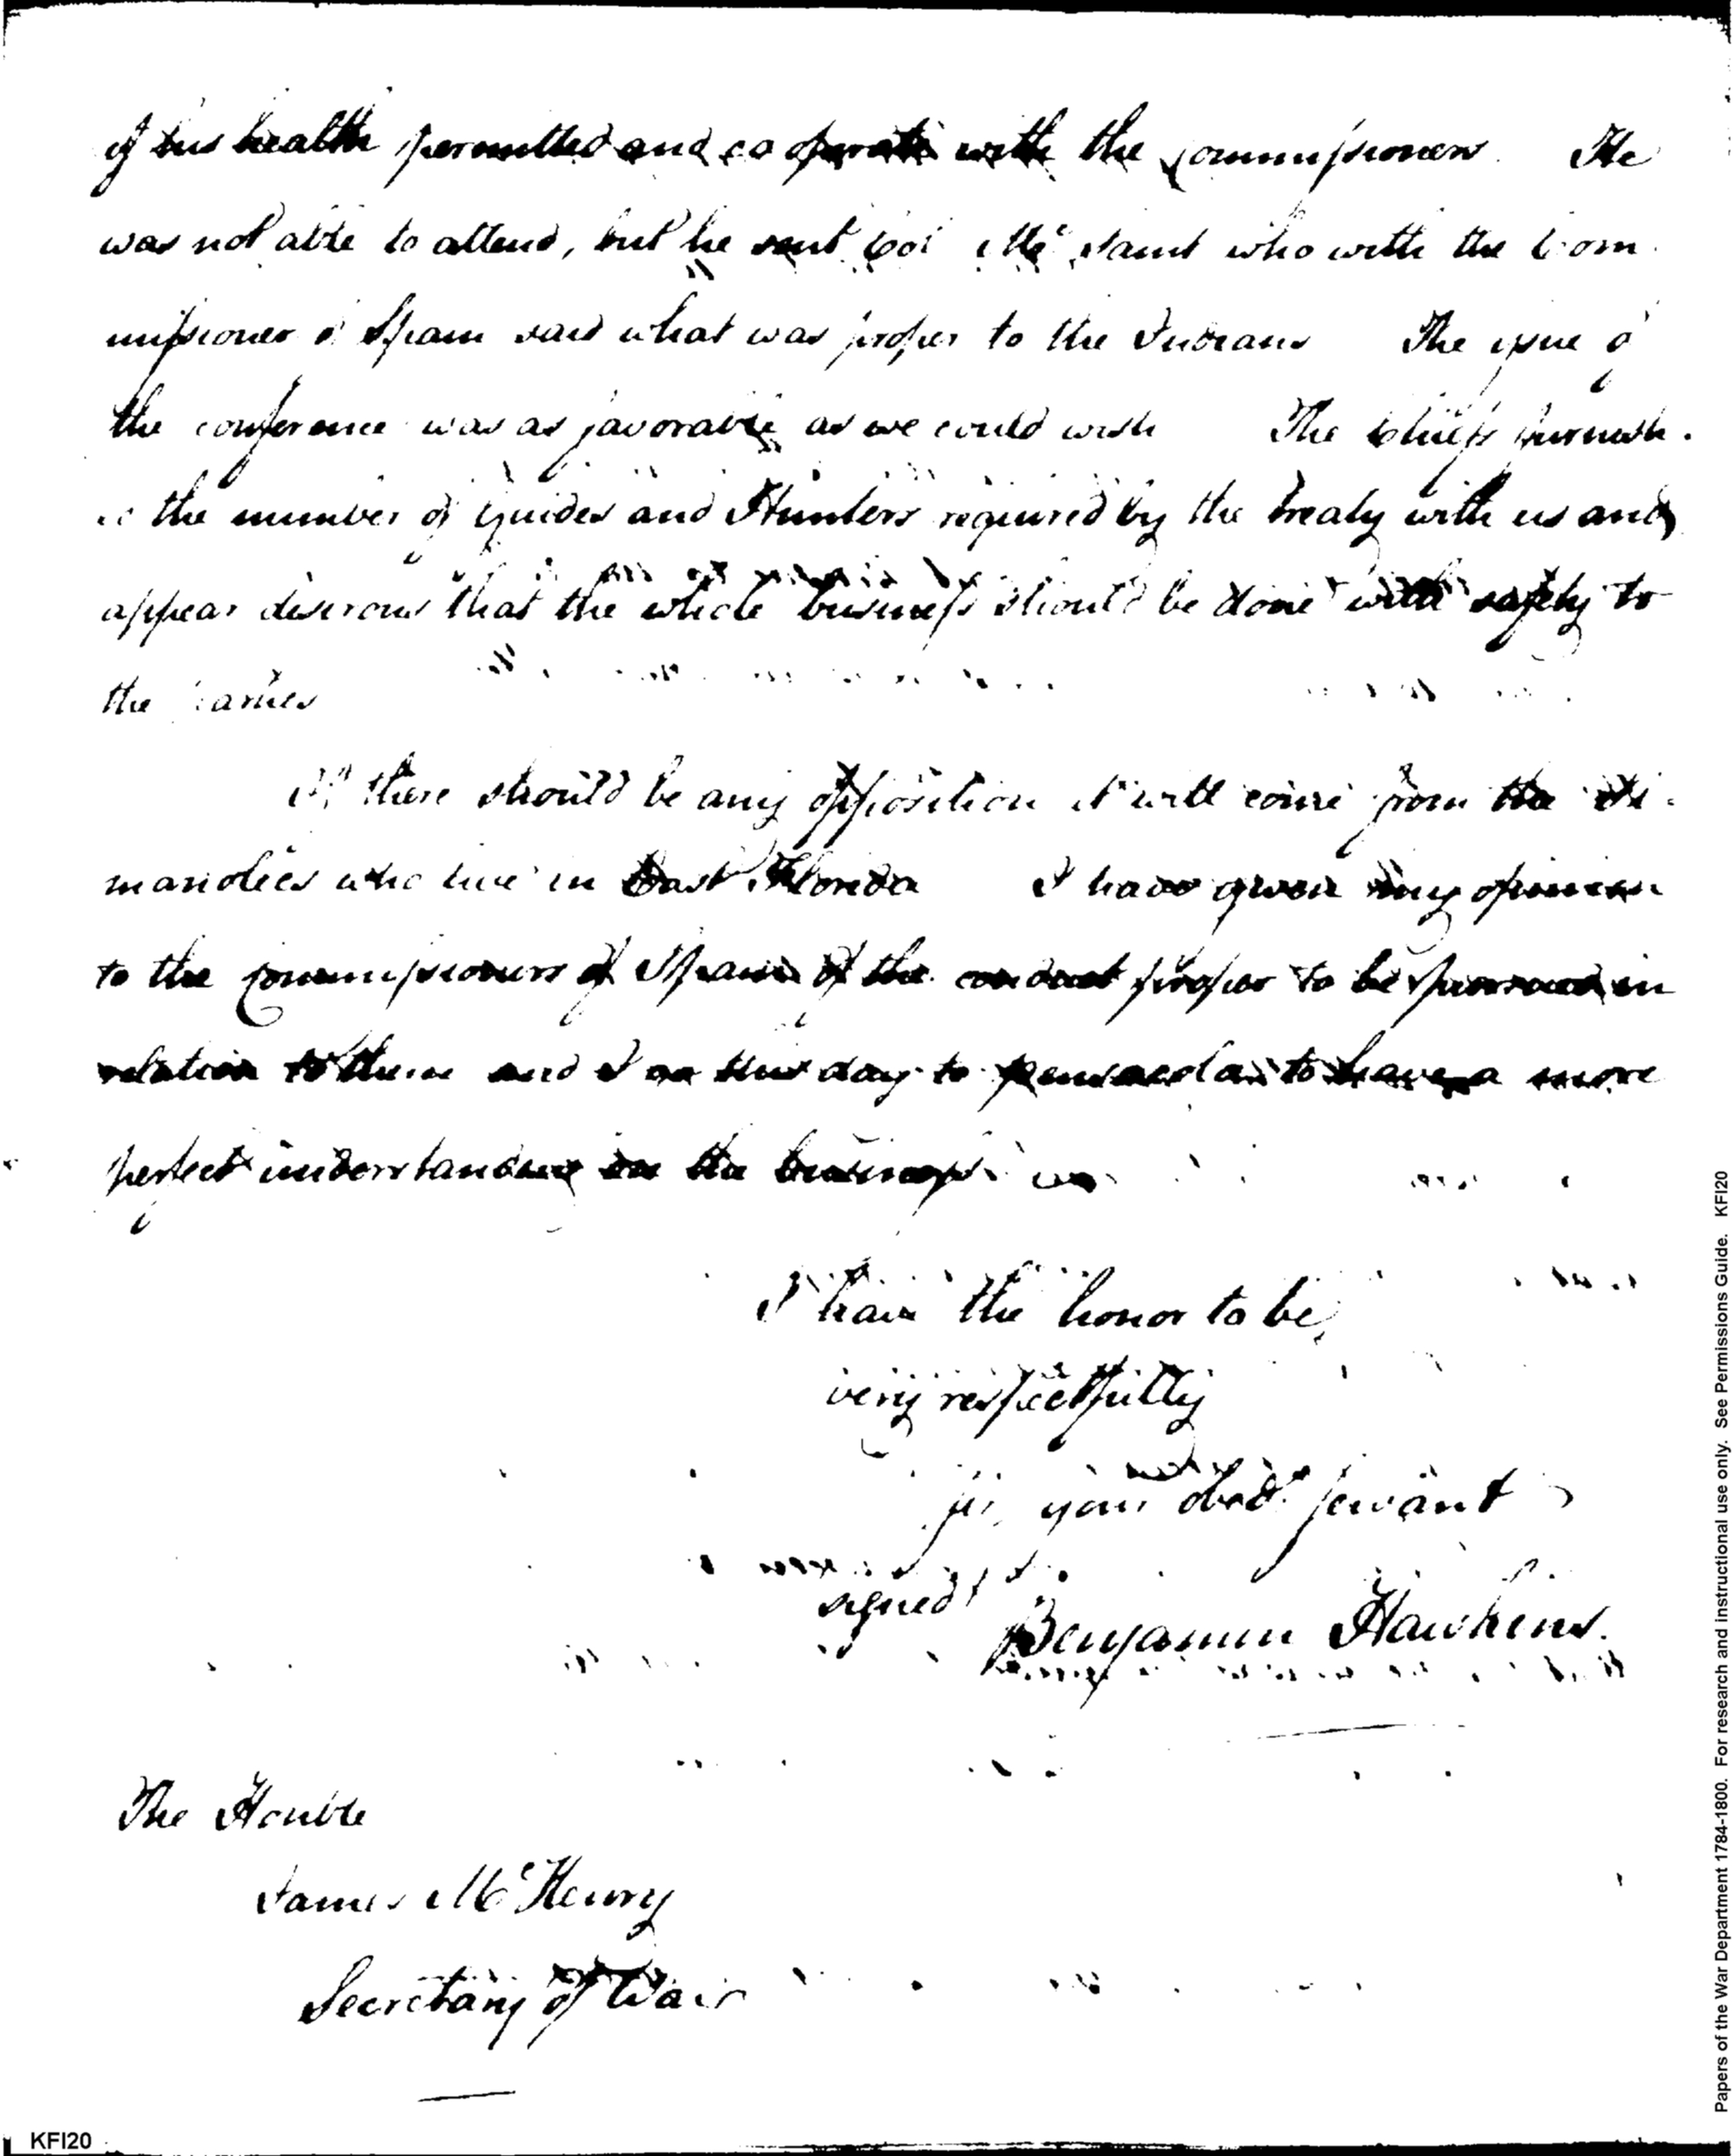 if his health permitted and co operate with the Commissioners. He
was not able to attend, but he sent Col Maxant who with the Com
missioner of Spain said what was proper to the Indians The issue of
the conference was as favorable as we could wish The Chiefs furnish.
ed the number of Guides and Hunters required by the treaty with us and
appear desirous that the whole business should be done with safety to
the parties
If there should be any opposition it will come from the Si
manolees who live in East Florida I have given my opinion
to the Commissioners of Spain of the conduct proper to be pursued in
relation to them and I go this day to pensacola to have a more
perfect understanding in the business
I have the honor to be,
very respectfully
sir, your obedt servant
signed Benjamin Hawkins.
The Honble
James McHenry
Secretary of War
KFI20
Papers of the War Department 1784-1800. For research and instructional use only. See Permissions Guide. KFI20